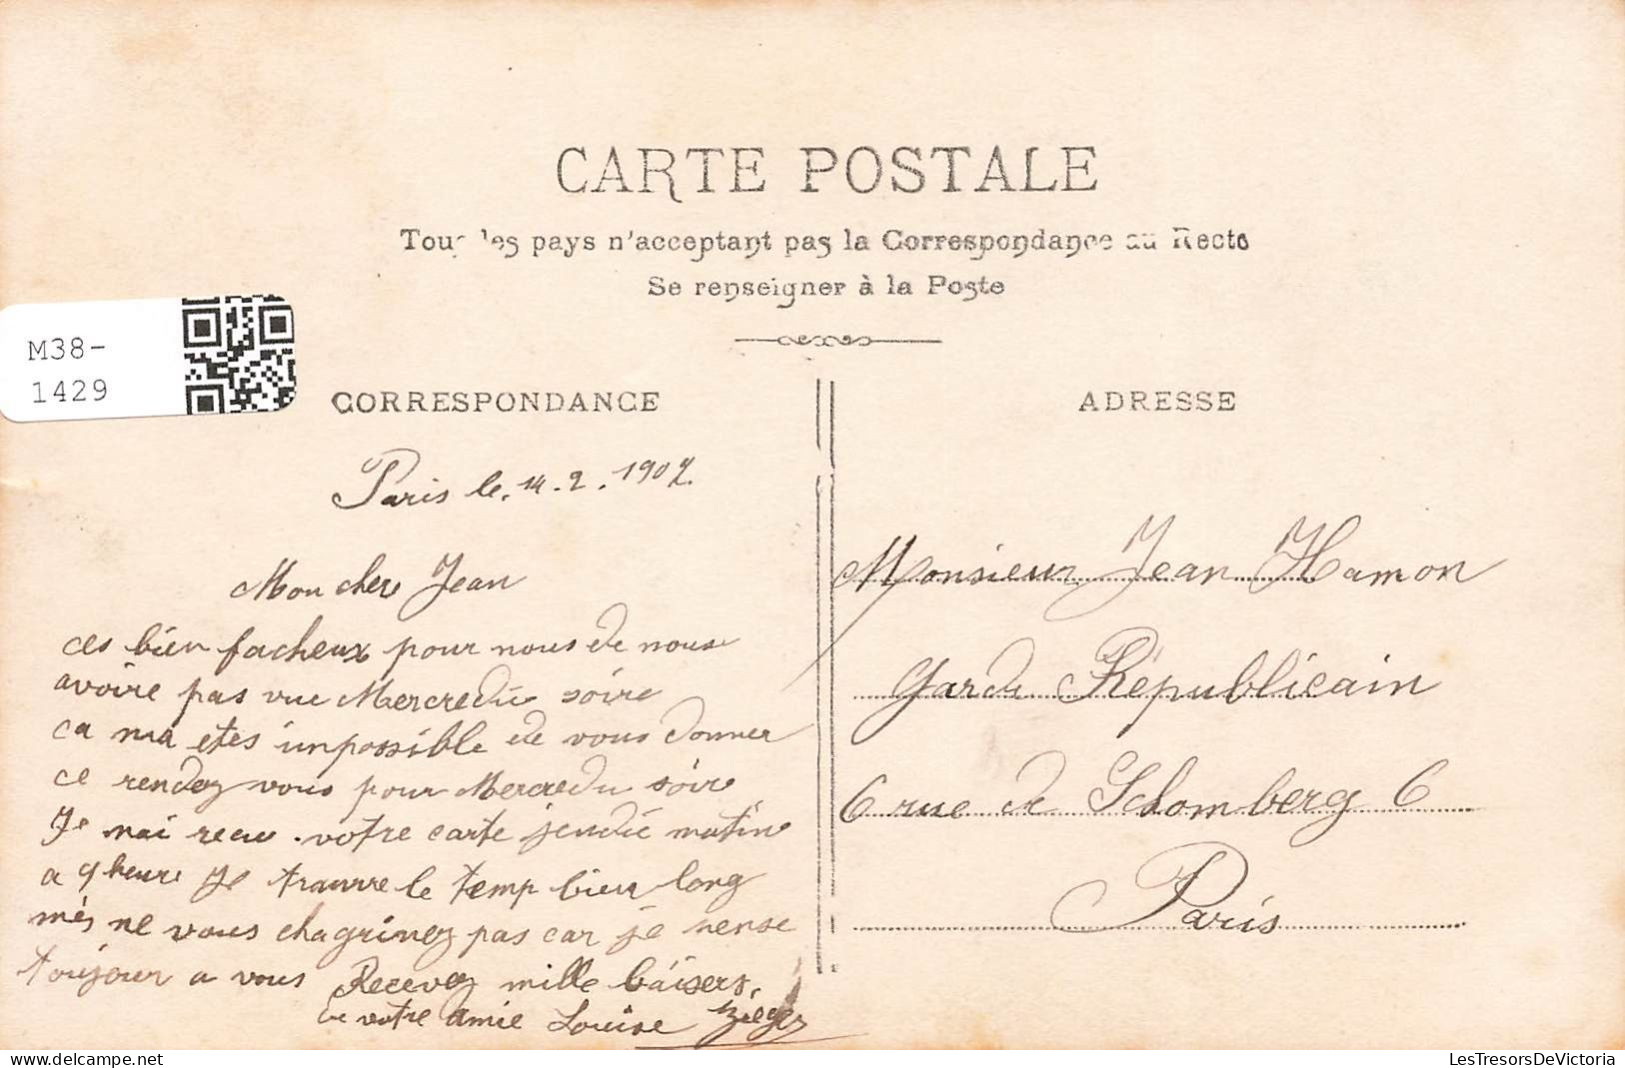 CARTE POSTALE
Tous les pays n'acceptant pas la Correspondance au Recto
Se renseigner à la Poste
M38-
1429
CORRESPONDANCE
Paris le. 14.2.190
Mon chere Jean
ces bien facheux pour nous de nous
avoire pas vue Mercredie soire
ca ma etes impossible de vous donner
ce rendez vous pour Mercredu soire
Je mai recu votre carte jeudie matine
a 9 heure Je trauvre le temp bien long
més ne vous chagrinez pas car je pense
toujour a vous Recevez mille baisers,
de votre amie Louise
ADRESSE
Monsieur Jean Hamon
Garde Républicain
6 rue de Schomberg 6
Paris
LesTresorsDeVictoria